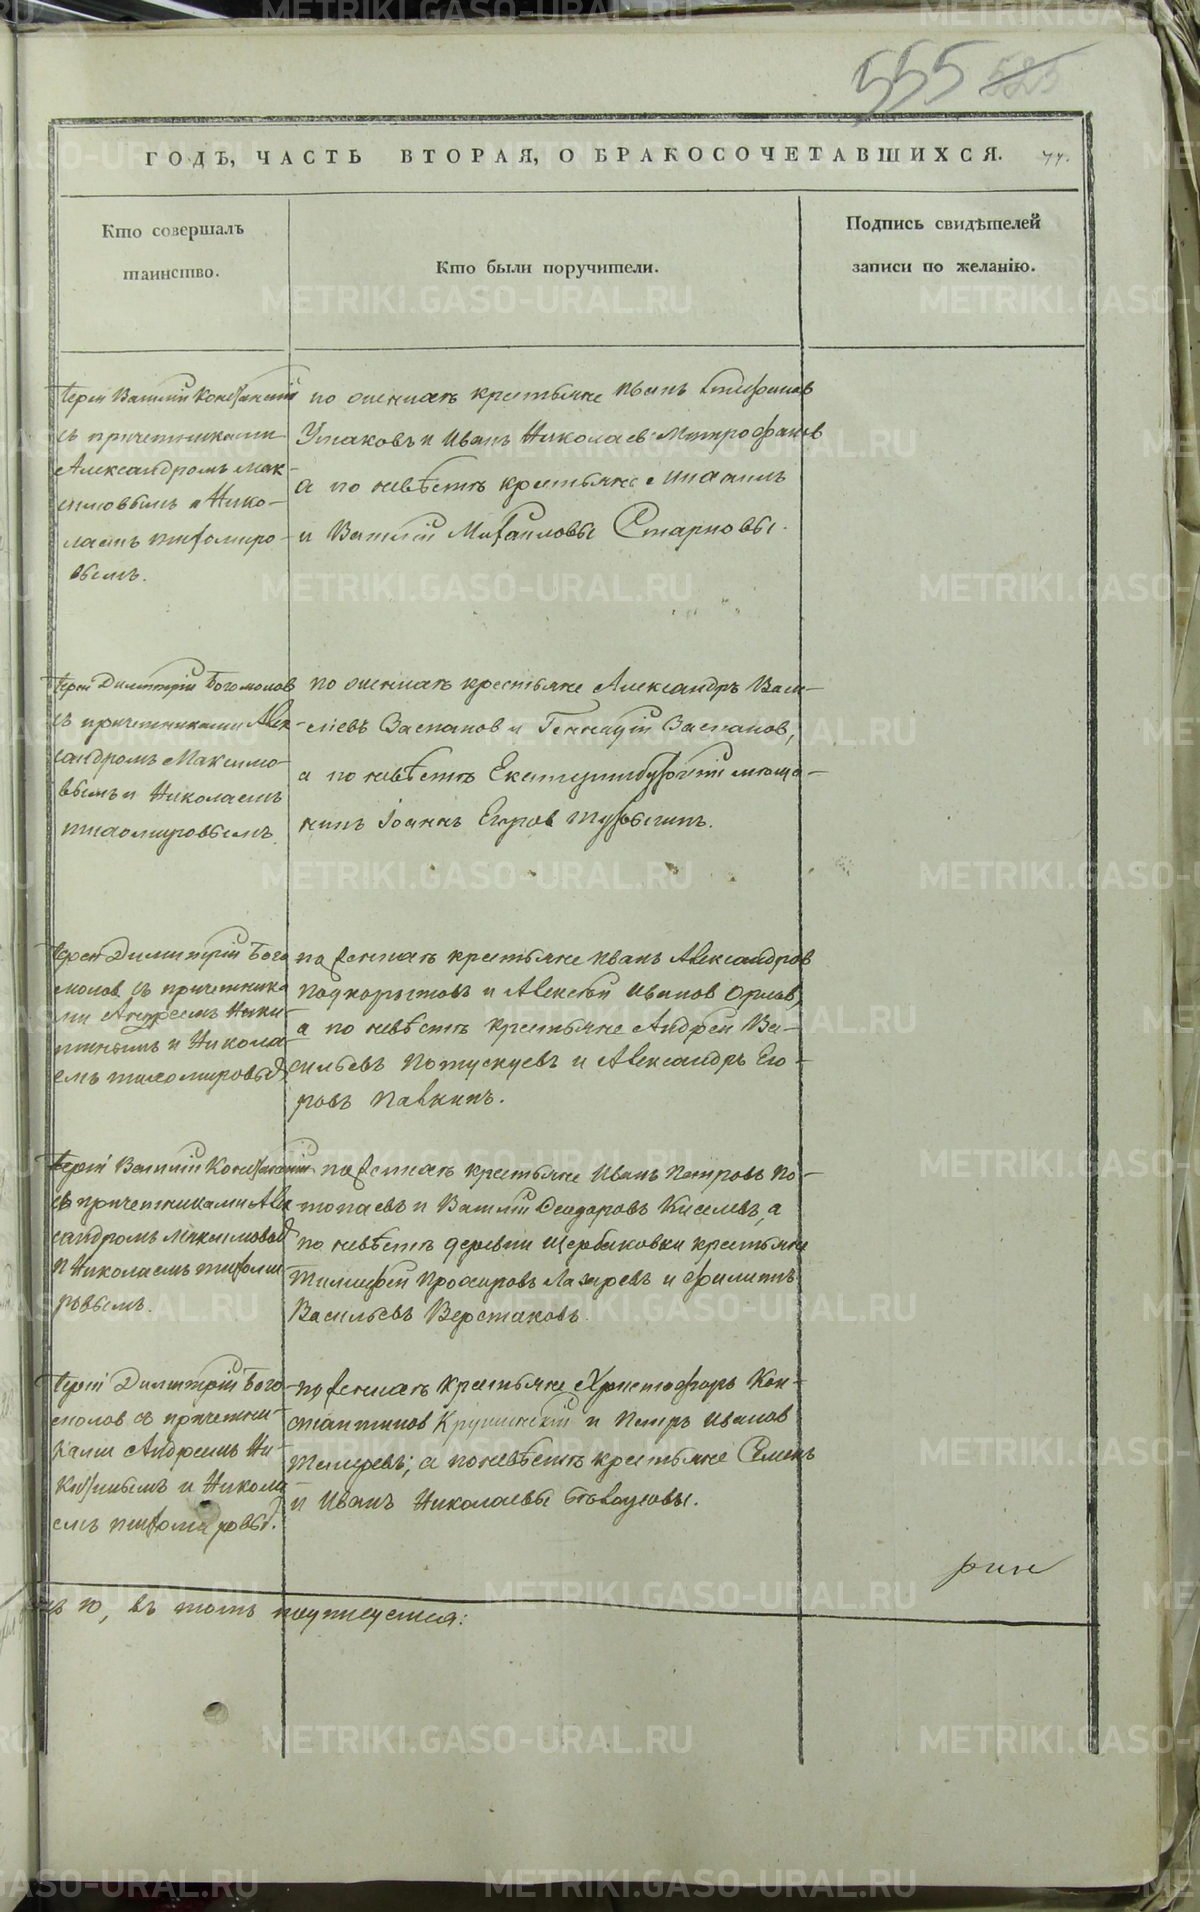 555 525
ГОДЪ, ЧАСТЬ ВТОРАЯ, О БРАКОСОЧЕТАВШИХСЯ. 77.
Кто совершалъ
таинство.
Кто были поручители.
Подпись свидѣтелей
записи по желанію.
Іерей Василій
съ причетниками
Александромъ Мак-
симовымъ и Нико-
лаемъ Тихомиро-
вымъ.
по женихѣ крестьяне Иванъ
Ушаковъ и Иванъ Николаевъ Митрофановъ
а по невѣстѣ крестьяне
и Василій Михаиловы
Іерей Димитрій Богомолов
съ причетниками Алек-
сандромъ Максимо-
вымъ и Николаемъ
Тихомировымъ.
по женихѣ крестьяне Александръ Васи-
льевъ и
а по невѣстѣ Екатеринбургскій мѣща-
нинъ Іоаннъ Егоров
Іерей Димитрій Бого
молов съ причетника
ми Андреемъ Ники-
тинымъ и Никола-
емъ Тихомировы
по женихѣ крестьяне Иванъ Александров
Подкорытовъ и Алексѣй Иванов Орлов,
а по невѣстѣ крестьяне Андрей Ва-
сильевъ Потускуевъ и Александръ Его-
ровъ
Іерей Василій
съ причетниками Алек
сандромъ Максимовы
и Николаемъ Тихоми
ровымъ.
по женихѣ крестьяне Иванъ Петровъ По-
топаевъ и Василій Ѳеодоровъ Киселевъ, а
по невѣстѣ деревни Щербаковки крестьяне
Тимофей Лазаревъ и Филиппъ
Васильевъ Верстаковъ.
Іерей Димитрій Бого
молов съ причетни-
ками Андреемъ Ни-
китинымъ и Никола
емъ Тихомировы.
по женихѣ крестьяне Христофоръ Кон-
стантинов и Петръ Иванов
а по невѣстѣ крестьяне Семенъ
и Иванъ Николаевы
въ томъ подписуемся:
METRIKI.GASO-URAL.RU